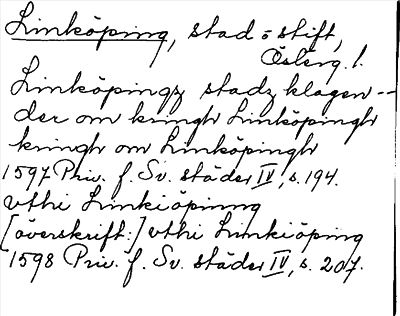 Linköping, stad o stift,
Österg. l.
Linköpingz stadz klagen--
der om kringh Linköpingh
kringh om Linköpingh
1597 Priv. f. Sv. städer IV, s. 194.
vthi Linkiöpinng
[överskrift:] vthi Linkiöping
1598 Priv. f. Sv. städer IV, s. 207.